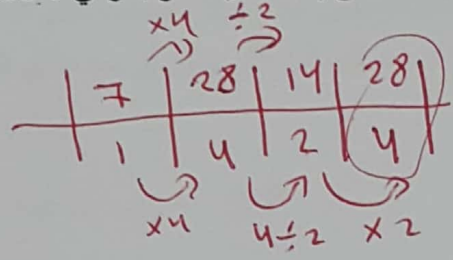 ×4 ÷2
7 28 14 28
1 4 2 4
×4 4÷2 ×2